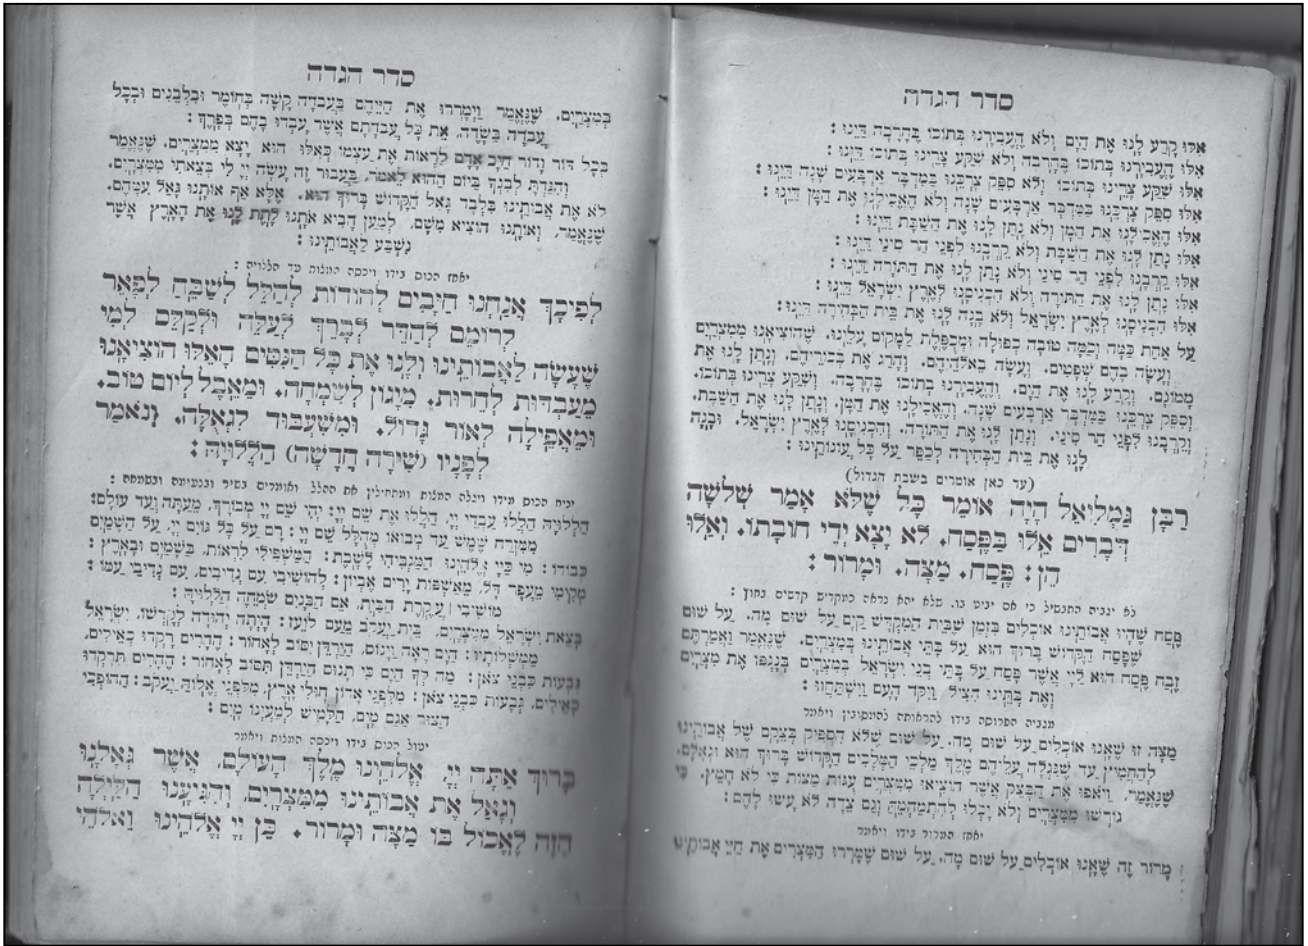 סדר הגדה
אִלּוּ קָרַע לָנוּ אֶת הַיָּם וְלֹא הֶעֱבִירָנוּ בְּתוֹכוֹ בֶּחָרָבָה דַּיֵּנוּ :
אִלּוּ הֶעֱבִירָנוּ בְּתוֹכוֹ בֶּחָרָבָה וְלֹא שִׁקַּע צָרֵינוּ בְּתוֹכוֹ דַּיֵּנוּ :
אִלּוּ שִׁקַּע צָרֵינוּ בְּתוֹכוֹ וְלֹא סִפֵּק צָרְכֵּנוּ בַּמִּדְבָּר אַרְבָּעִים שָׁנָה דַּיֵּנוּ :
אִלּוּ סִפֵּק צָרְכֵּנוּ בַּמִּדְבָּר אַרְבָּעִים שָׁנָה וְלֹא הֶאֱכִילָנוּ אֶת הַמָּן דַּיֵּנוּ :
אִלּוּ הֶאֱכִילָנוּ אֶת הַמָּן וְלֹא נָתַן לָנוּ אֶת הַשַּׁבָּת דַּיֵּנוּ :
אִלּוּ נָתַן לָנוּ אֶת הַשַּׁבָּת וְלֹא קֵרְבָנוּ לִפְנֵי הַר סִינַי דַּיֵּנוּ :
אִלּוּ קֵרְבָנוּ לִפְנֵי הַר סִינַי וְלֹא נָתַן לָנוּ אֶת הַתּוֹרָה דַּיֵּנוּ :
אִלּוּ נָתַן לָנוּ אֶת הַתּוֹרָה וְלֹא הִכְנִיסָנוּ לְאֶרֶץ יִשְׂרָאֵל דַּיֵּנוּ :
אִלּוּ הִכְנִיסָנוּ לְאֶרֶץ יִשְׂרָאֵל וְלֹא בָנָה לָנוּ אֶת בֵּית הַבְּחִירָה דַּיֵּנוּ :
עַל אַחַת כַּמָּה וְכַמָּה טוֹבָה כְפוּלָה וּמְכֻפֶּלֶת לַמָּקוֹם עָלֵינוּ. שֶׁהוֹצִיאָנוּ מִמִּצְרַיִם
וְעָשָׂה בָהֶם שְׁפָטִים. וְעָשָׂה בֵאלֹהֵיהֶם. וְהָרַג אֶת בְּכוֹרֵיהֶם. וְנָתַן לָנוּ אֶת
מָמוֹנָם. וְקָרַע לָנוּ אֶת הַיָּם. וְהֶעֱבִירָנוּ בְתוֹכוֹ בֶּחָרָבָה. וְשִׁקַּע צָרֵינוּ בְּתוֹכוֹ.
וְסִפֵּק צָרְכֵּנוּ בַּמִּדְבָּר אַרְבָּעִים שָׁנָה. וְהֶאֱכִילָנוּ אֶת הַמָּן. וְנָתַן לָנוּ אֶת הַשַּׁבָּת.
וְקֵרְבָנוּ לִפְנֵי הַר סִינַי. וְנָתַן לָנוּ אֶת הַתּוֹרָה. וְהִכְנִיסָנוּ לְאֶרֶץ יִשְׂרָאֵל. וּבָנָה
לָנוּ אֶת בֵּית הַבְּחִירָה לְכַפֵּר עַל כָּל עֲוֹנוֹתֵינוּ :
(עד כאן אומרים בשבת הגדול)
רַבָּן גַּמְלִיאֵל הָיָה אוֹמֵר כָּל שֶׁלֹּא אָמַר שְׁלֹשָׁה
דְּבָרִים אֵלּוּ בַּפֶּסַח. לֹא יָצָא יְדֵי חוֹבָתוֹ. וְאֵלּוּ
הֵן : פֶּסַח. מַצָּה. וּמָרוֹר :
לא יגביה התבשיל כי אם יביט בו, שלא יהא נראה כמקדיש קדשים בחוץ :
פֶּסַח שֶׁהָיוּ אֲבוֹתֵינוּ אוֹכְלִים בִּזְמַן שֶׁבֵּית הַמִּקְדָּשׁ קַיָּם עַל שׁוּם מָה. עַל שׁוּם
שֶׁפָּסַח הַקָּדוֹשׁ בָּרוּךְ הוּא עַל בָּתֵּי אֲבוֹתֵינוּ בְּמִצְרַיִם. שֶׁנֶּאֱמַר וַאֲמַרְתֶּם
זֶבַח פֶּסַח הוּא לַיְיָ אֲשֶׁר פָּסַח עַל בָּתֵּי בְנֵי יִשְׂרָאֵל בְּמִצְרַיִם בְּנָגְפּוֹ אֶת מִצְרַיִם
וְאֶת בָּתֵּינוּ הִצִּיל וַיִּקֹּד הָעָם וַיִּשְׁתַּחֲווּ :
מגביה הפרוסה בידו להראותה להמסובין ויאמר
מַצָּה זוּ שֶׁאָנוּ אוֹכְלִים עַל שׁוּם מָה. עַל שׁוּם שֶׁלֹּא הִסְפִּיק בְּצֵקָם שֶׁל אֲבוֹתֵינוּ
לְהַחֲמִיץ עַד שֶׁנִּגְלָה עֲלֵיהֶם מֶלֶךְ מַלְכֵי הַמְּלָכִים הַקָּדוֹשׁ בָּרוּךְ הוּא וּגְאָלָם.
שֶׁנֶּאֱמַר. וַיֹּאפוּ אֶת הַבָּצֵק אֲשֶׁר הוֹצִיאוּ מִמִּצְרַיִם עֻגוֹת מַצּוֹת כִּי לֹא חָמֵץ. כִּי
גוֹרְשׁוּ מִמִּצְרַיִם וְלֹא יָכְלוּ לְהִתְמַהְמֵהַּ וְגַם צֵדָה לֹא עָשׂוּ לָהֶם :
יאחז המרור בידו ויאמר
מָרוֹר זֶה שֶׁאָנוּ אוֹכְלִים עַל שׁוּם מָה. עַל שׁוּם שֶׁמֵּרְרוּ הַמִּצְרִים אֶת חַיֵּי אֲבוֹתֵינוּ
סדר הגדה
בְּמִצְרַיִם. שֶׁנֶּאֱמַר וַיְמָרְרוּ אֶת חַיֵּיהֶם בַּעֲבֹדָה קָשָׁה בְּחוֹמֶר וּבִלְבֵנִים וּבְכָל
עֲבֹדָה בַּשָּׂדֶה, אֵת כָּל עֲבֹדָתָם אֲשֶׁר עָבְדוּ בָהֶם בְּפָרֶךְ :
בְּכָל דּוֹר וָדוֹר חַיָּב אָדָם לִרְאוֹת אֶת עַצְמוֹ כְּאִלּוּ הוּא יָצָא מִמִּצְרַיִם. שֶׁנֶּאֱמַר
וְהִגַּדְתָּ לְבִנְךָ בַּיּוֹם הַהוּא לֵאמֹר, בַּעֲבוּר זֶה עָשָׂה יְיָ לִי בְּצֵאתִי מִמִּצְרָיִם.
לֹא אֶת אֲבוֹתֵינוּ בִּלְבַד גָּאַל הַקָּדוֹשׁ בָּרוּךְ הוּא. אֶלָּא אַף אוֹתָנוּ גָּאַל עִמָּהֶם.
שֶׁנֶּאֱמַר, וְאוֹתָנוּ הוֹצִיא מִשָּׁם, לְמַעַן הָבִיא אֹתָנוּ לָתֶת לָנוּ אֶת הָאָרֶץ אֲשֶׁר
נִשְׁבַּע לַאֲבוֹתֵינוּ :
יאחז הכוס בידו ויכסה המצות עד הללויה :
לְפִיכָךְ אֲנַחְנוּ חַיָּבִים לְהוֹדוֹת לְהַלֵּל לְשַׁבֵּחַ לְפָאֵר
לְרוֹמֵם לְהַדֵּר לְבָרֵךְ לְעַלֵּה וּלְקַלֵּס לְמִי
שֶׁעָשָׂה לַאֲבוֹתֵינוּ וְלָנוּ אֶת כָּל הַנִּסִּים הָאֵלּוּ הוֹצִיאָנוּ
מֵעַבְדוּת לְחֵרוּת. מִיָּגוֹן לְשִׂמְחָה. וּמֵאֵבֶל לְיוֹם טוֹב.
וּמֵאֲפֵילָה לְאוֹר גָּדוֹל. וּמִשִּׁעְבּוּד לִגְאֻלָּה. וְנֹאמַר
לְפָנָיו (שִׁירָה חֲדָשָׁה) הַלְלוּיָהּ :
יניח הכוס מידו ויגלה המצות ומתחילין את ההלל ואומרים בשיר ובנעימה ובשמחה :
הַלְלוּיָהּ הַלְלוּ עַבְדֵי יְיָ, הַלְלוּ אֶת שֵׁם יְיָ : יְהִי שֵׁם יְיָ מְבוֹרָךְ, מֵעַתָּה וְעַד עוֹלָם :
מִמִּזְרַח שֶׁמֶשׁ עַד מְבוֹאוֹ מְהֻלָּל שֵׁם יְיָ : רָם עַל כָּל גּוֹיִם יְיָ, עַל הַשָּׁמַיִם
כְּבוֹדוֹ : מִי כַּיְיָ אֱלֹהֵינוּ הַמַּגְבִּיהִי לָשָׁבֶת : הַמַּשְׁפִּילִי לִרְאוֹת, בַּשָּׁמַיִם וּבָאָרֶץ :
מְקִימִי מֵעָפָר דָּל, מֵאַשְׁפּוֹת יָרִים אֶבְיוֹן : לְהוֹשִׁיבִי עִם נְדִיבִים, עִם נְדִיבֵי עַמּוֹ :
מוֹשִׁיבִי עֲקֶרֶת הַבַּיִת, אֵם הַבָּנִים שְׂמֵחָה הַלְלוּיָהּ :
בְּצֵאת יִשְׂרָאֵל מִמִּצְרַיִם, בֵּית יַעֲקֹב מֵעַם לֹעֵז : הָיְתָה יְהוּדָה לְקָדְשׁוֹ, יִשְׂרָאֵל
מַמְשְׁלוֹתָיו : הַיָּם רָאָה וַיָּנוֹס, הַיַּרְדֵּן יִסּוֹב לְאָחוֹר : הֶהָרִים רָקְדוּ כְאֵילִים,
גְּבָעוֹת כִּבְנֵי צֹאן : מַה לְּךָ הַיָּם כִּי תָנוּס הַיַּרְדֵּן תִּסּוֹב לְאָחוֹר : הֶהָרִים תִּרְקְדוּ
כְאֵילִים, גְּבָעוֹת כִּבְנֵי צֹאן : מִלִּפְנֵי אָדוֹן חוּלִי אָרֶץ, מִלִּפְנֵי אֱלוֹהַּ יַעֲקֹב : הַהוֹפְכִי
הַצּוּר אֲגַם מָיִם, חַלָּמִישׁ לְמַעְיְנוֹ מָיִם :
יטול הכוס בידו ויכסה המצות ויאמר
בָּרוּךְ אַתָּה יְיָ, אֱלֹהֵינוּ מֶלֶךְ הָעוֹלָם, אֲשֶׁר גְּאָלָנוּ
וְגָאַל אֶת אֲבוֹתֵינוּ מִמִּצְרַיִם, וְהִגִּיעָנוּ הַלַּיְלָה
הַזֶּה לֶאֱכוֹל בּוֹ מַצָּה וּמָרוֹר. כֵּן יְיָ אֱלֹהֵינוּ וֵאלֹהֵי